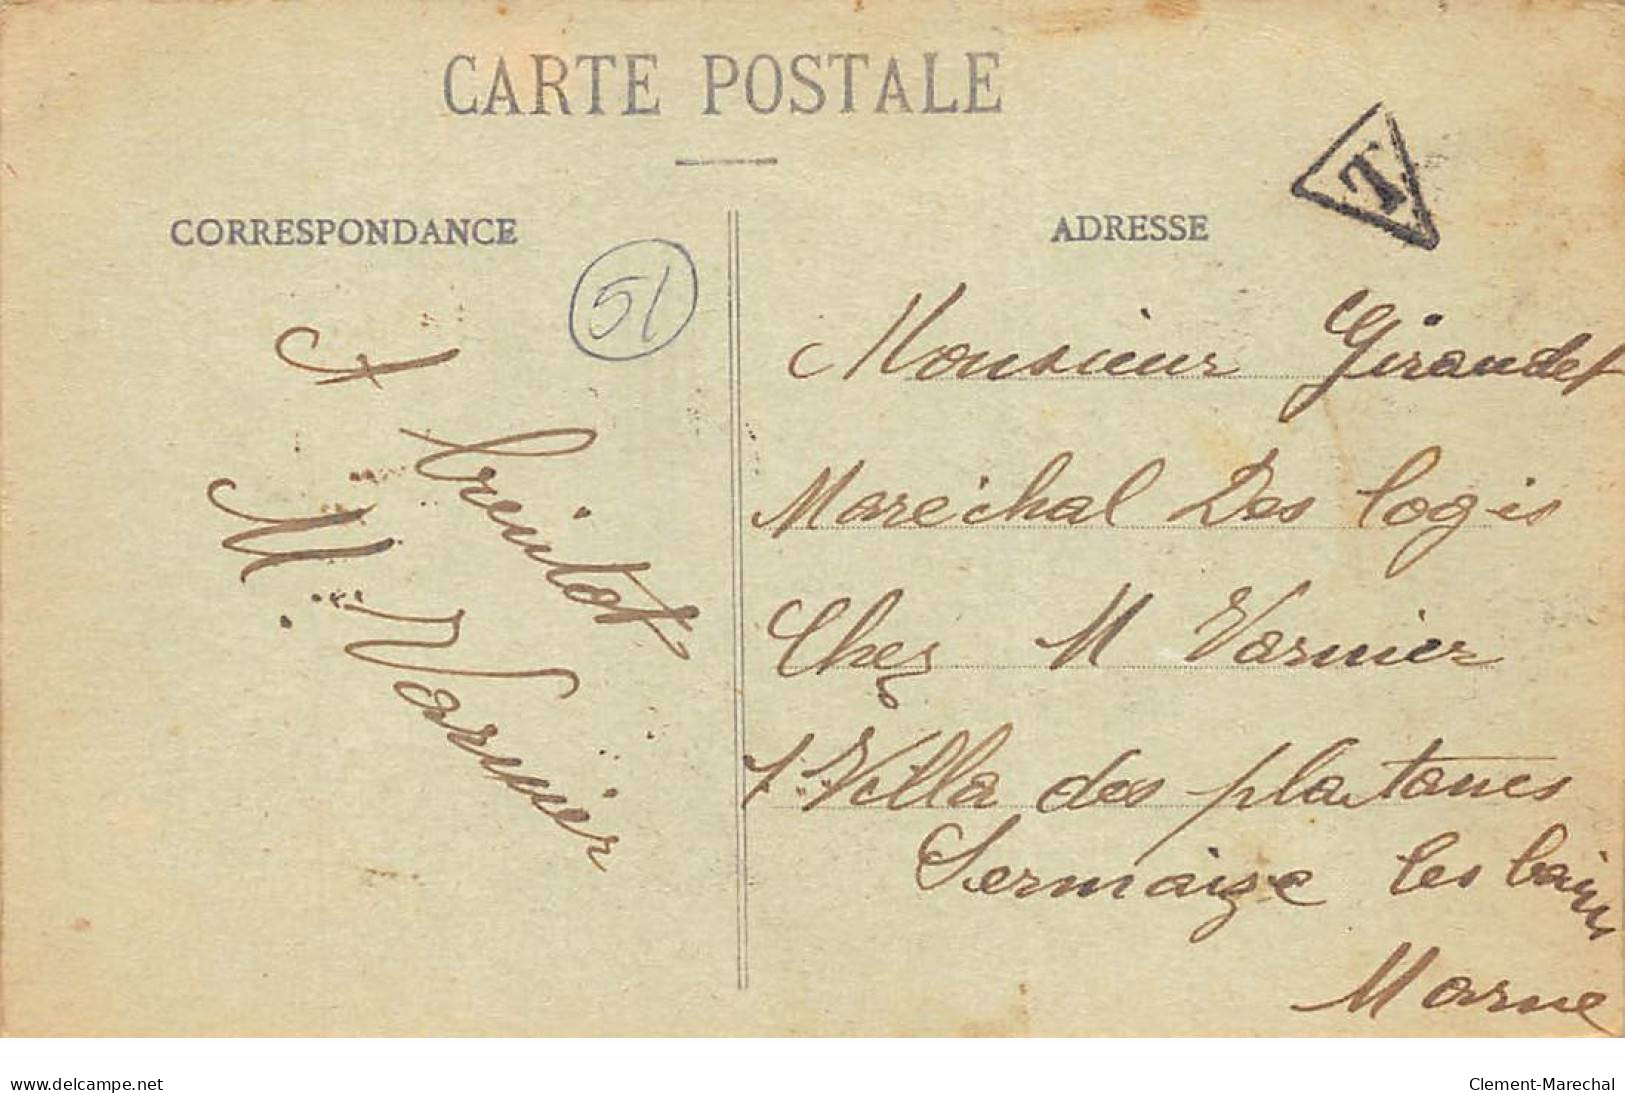 CARTE POSTALE
CORRESPONDANCE
ADRESSE
T
51
A breintot
M. Varnier
Monsieur Giraudet
Maréchal Des logis
Chez M Varnier
1 Villa des platanes
Sermaize les bains
Marne
www.delcampe.net
Clement-Marechal